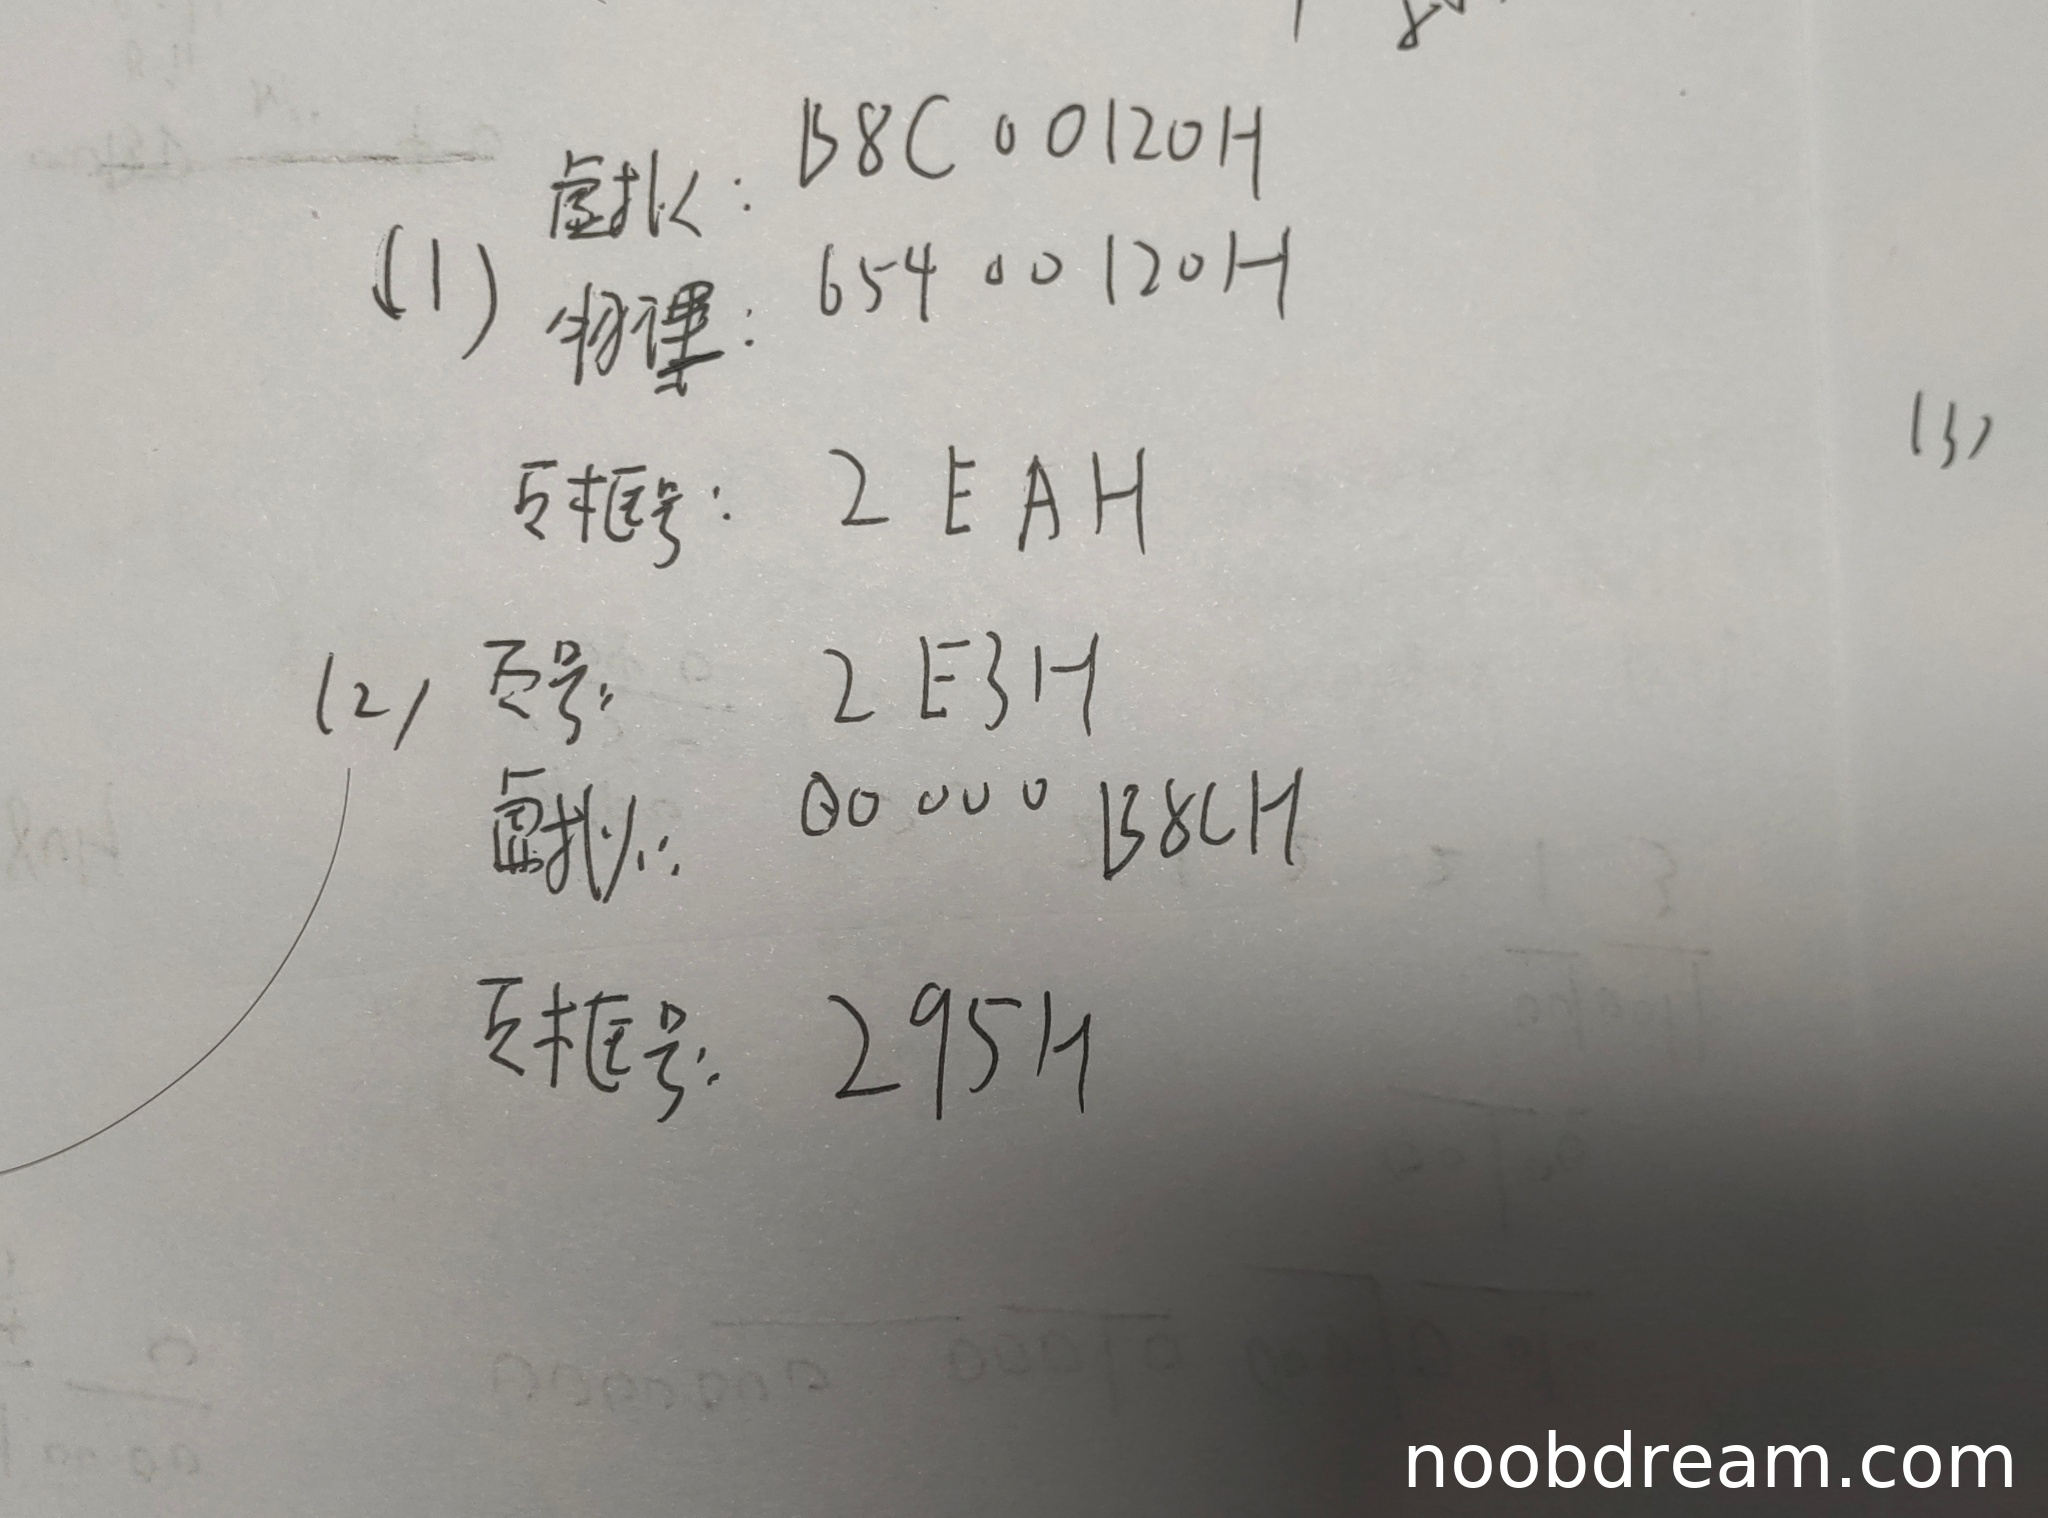 虚拟: B8C00120H
(1)
物理: 65400120H
页框号: 2EAH
(3)
(2) 页号: 2E3H
虚拟: 00000B8CH
页框号: 295H
noobdream.com